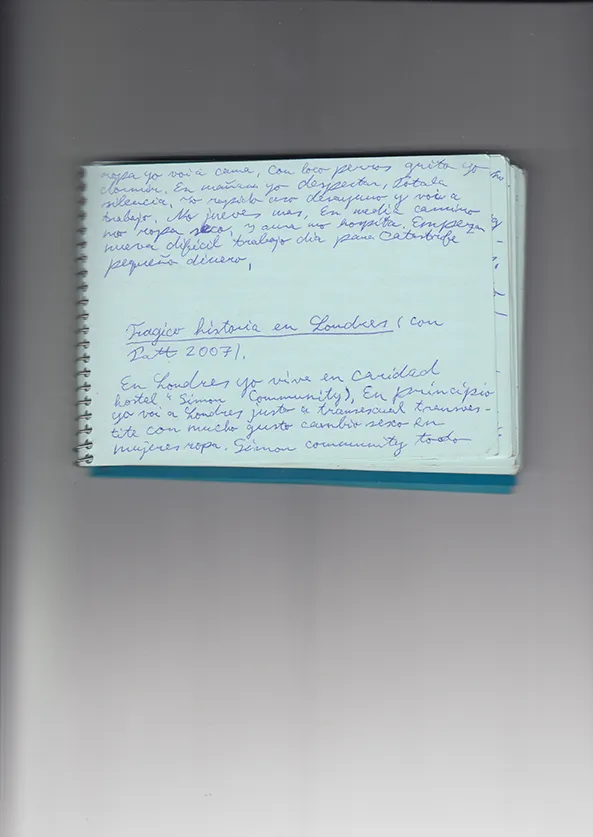 ropa yo voi a cama, con loco perros grita yo
dormir. En mañana yo despertar, Totala
silencia, yo rapido uso desayuno y voi a
trabajo. No jueves mas, En media camino
no ropa seco, y aura no hospita. Empeza
nueva difícil trabajo dia para catastrife
pequeña dinero,
Tragico historia en Londres (con
2007).
En Londres yo vive en caridad
hostel "Simon Community), En principio
yo voi a Londres justo a transexual transves-
tite con mucho gusto cambio sexo en
mujeres ropa. Simon community todo